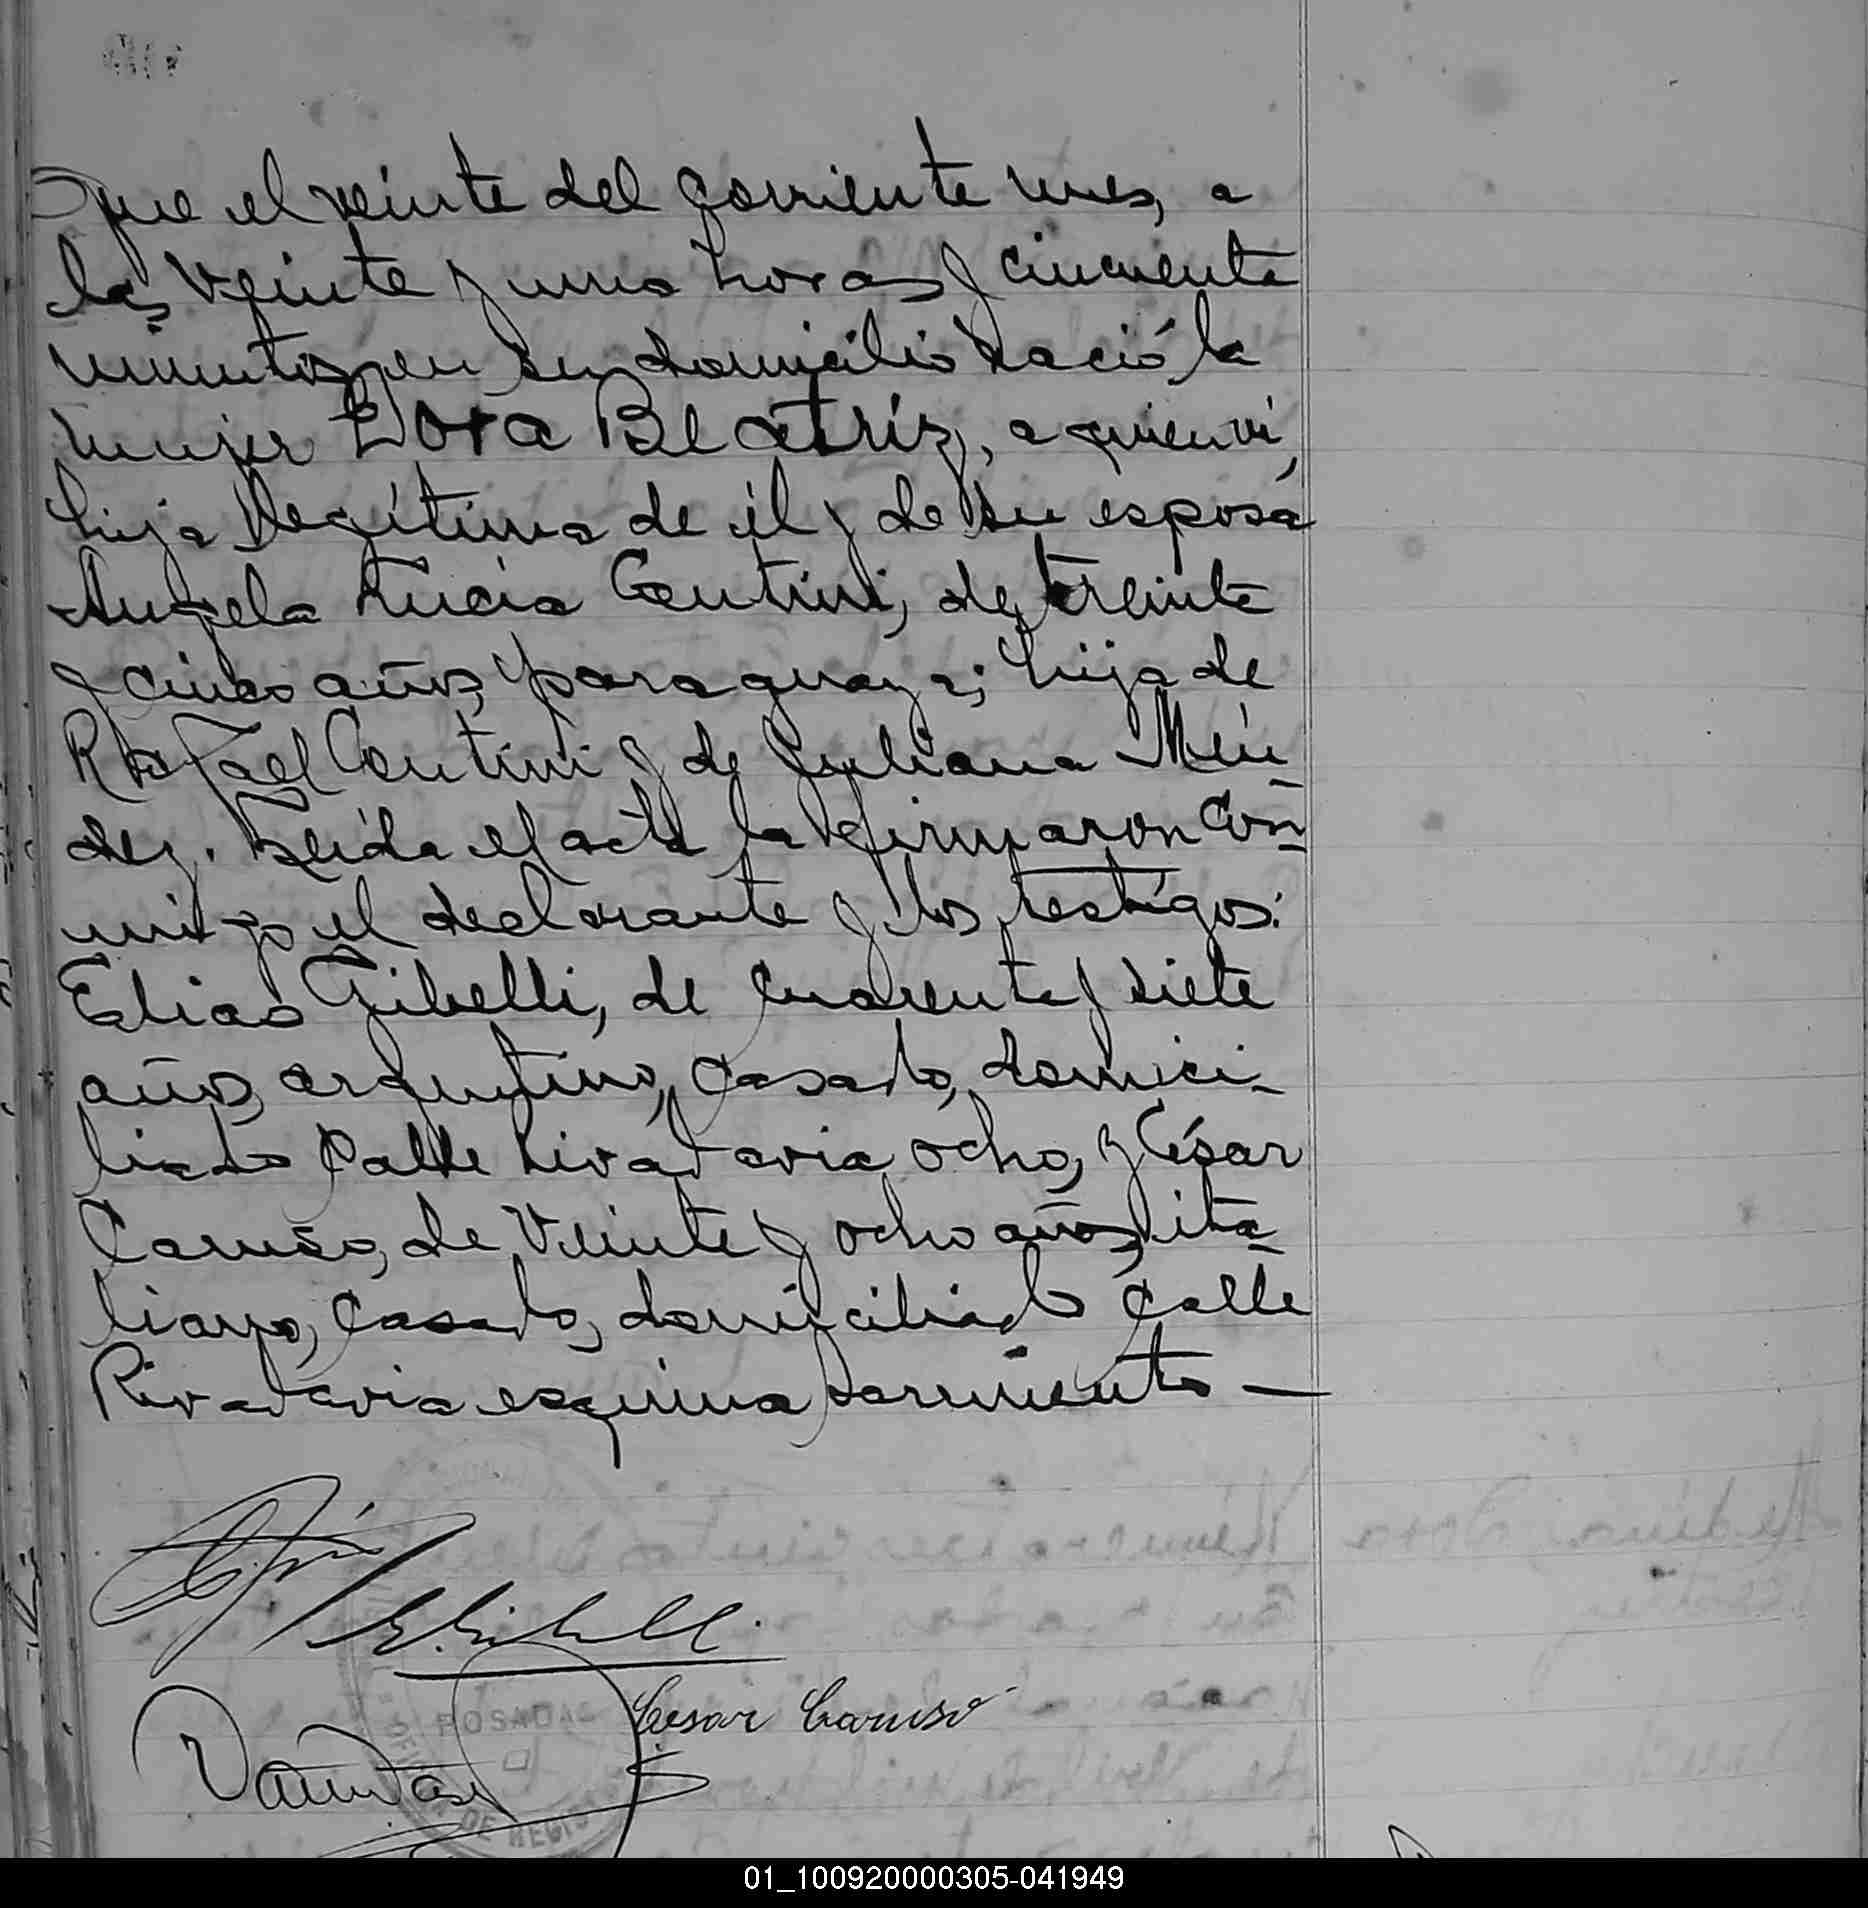 que el veinte del corriente mes, a
las veinte y una horas y cincuenta
minutos, en su domicilio nació la
mujer Dora Beatriz, a quien vi,
hija legítima de él y de su esposa
Angela Lucía Contini, de treinta
y cinco años, paraguaya; hija de
Rafael Contini y de Juliana Mén-
dez. Leída el acta la firmaron con-
migo el declarante y los testigos:
Elias Gibelli, de cuarenta y siete
años, argentino, casado, domici-
liado calle Rivadavia ocho, y César
Caruso, de veinte y ocho años, ita-
liano, casado, domiciliado calle
Rivadavia esquina Sarmiento —
E. Gibelli
Cesar Caruso
POSADAS
OFICINA DE REGIS
01_100920000305-041949